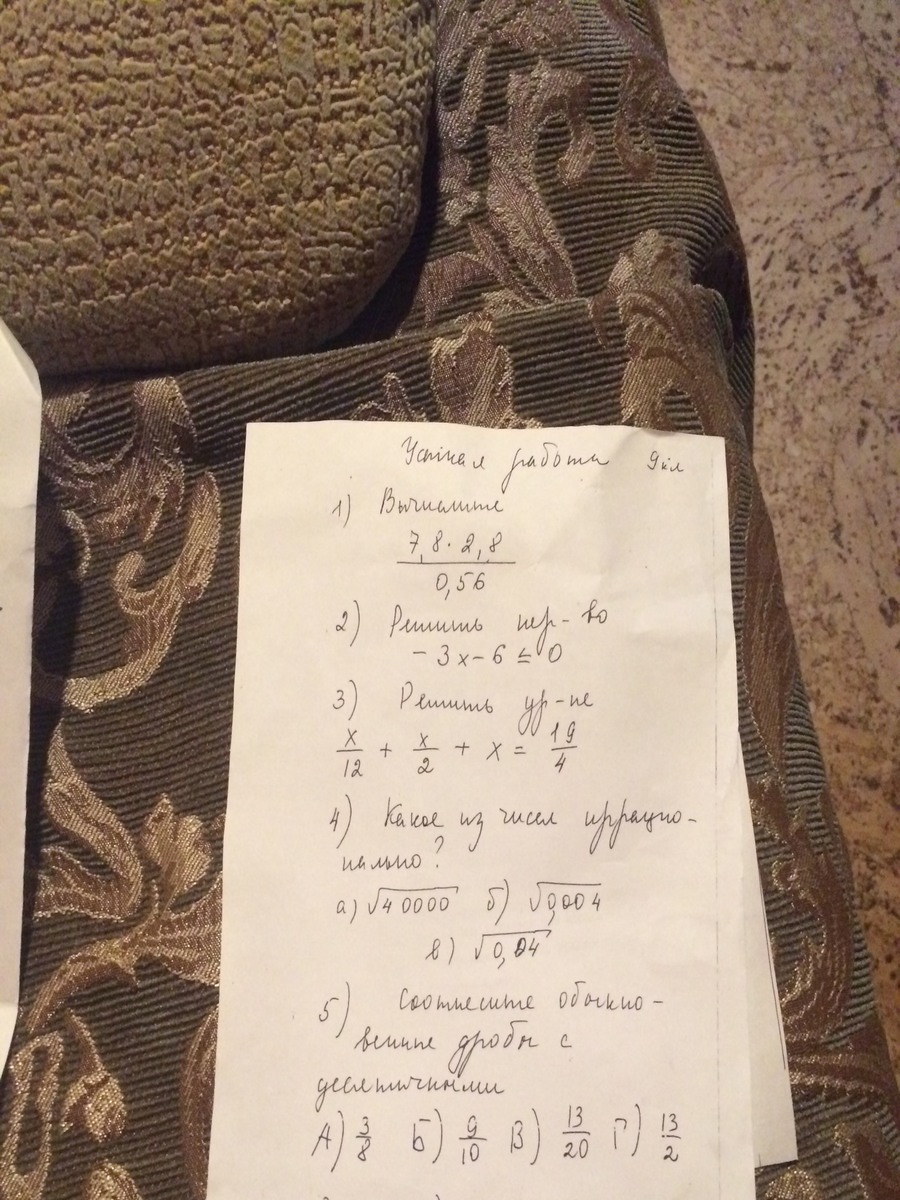 Устная работа 9 кл
1) Вычислите
7,8 · 2,8
0,56
2) Решить нер-во
- 3x - 6 ≤ 0
3) Решить ур-ие
x/12 + x/2 + x = 19/4
4) Какое из чисел иррацио-
нально?
а) √40000 б) √0,004
в) √0,04
5) Соотнесите обыкно-
венные дроби с
десятичными
А) 3/8 Б) 9/10 В) 13/20 Г) 13/2